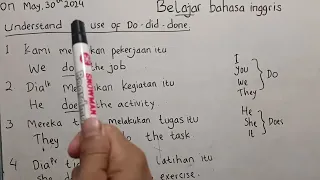 on May, 30th 2024
Belajar bahasa inggris
Understand use of Do - did - done.
1 Kami pekerjaan itu
We do the job
2 Dia lk kan kegiatan itu
He does the activity
3 Mereka melakukan tugas itu
They do the task
4 Dia pr latihan itu
She exercise.
I
You
We
They
Do
He
She
It
Does
SNOWMAN